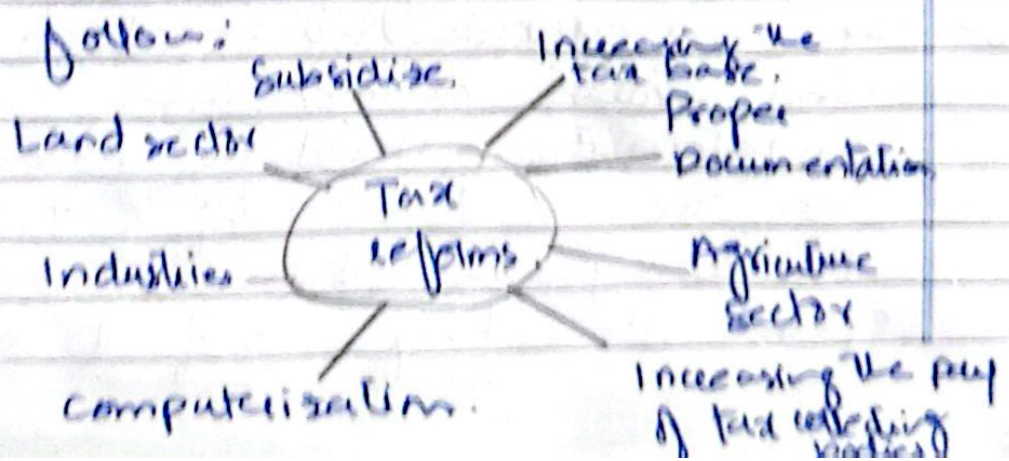 follow:
Subsidise.
Increasing the
tax base.
Land sector
Proper
Documentation
Tax
reforms.
Industries
Agriculture
sector
Computerisation.
Increasing the pay
of tax collecting
bodies